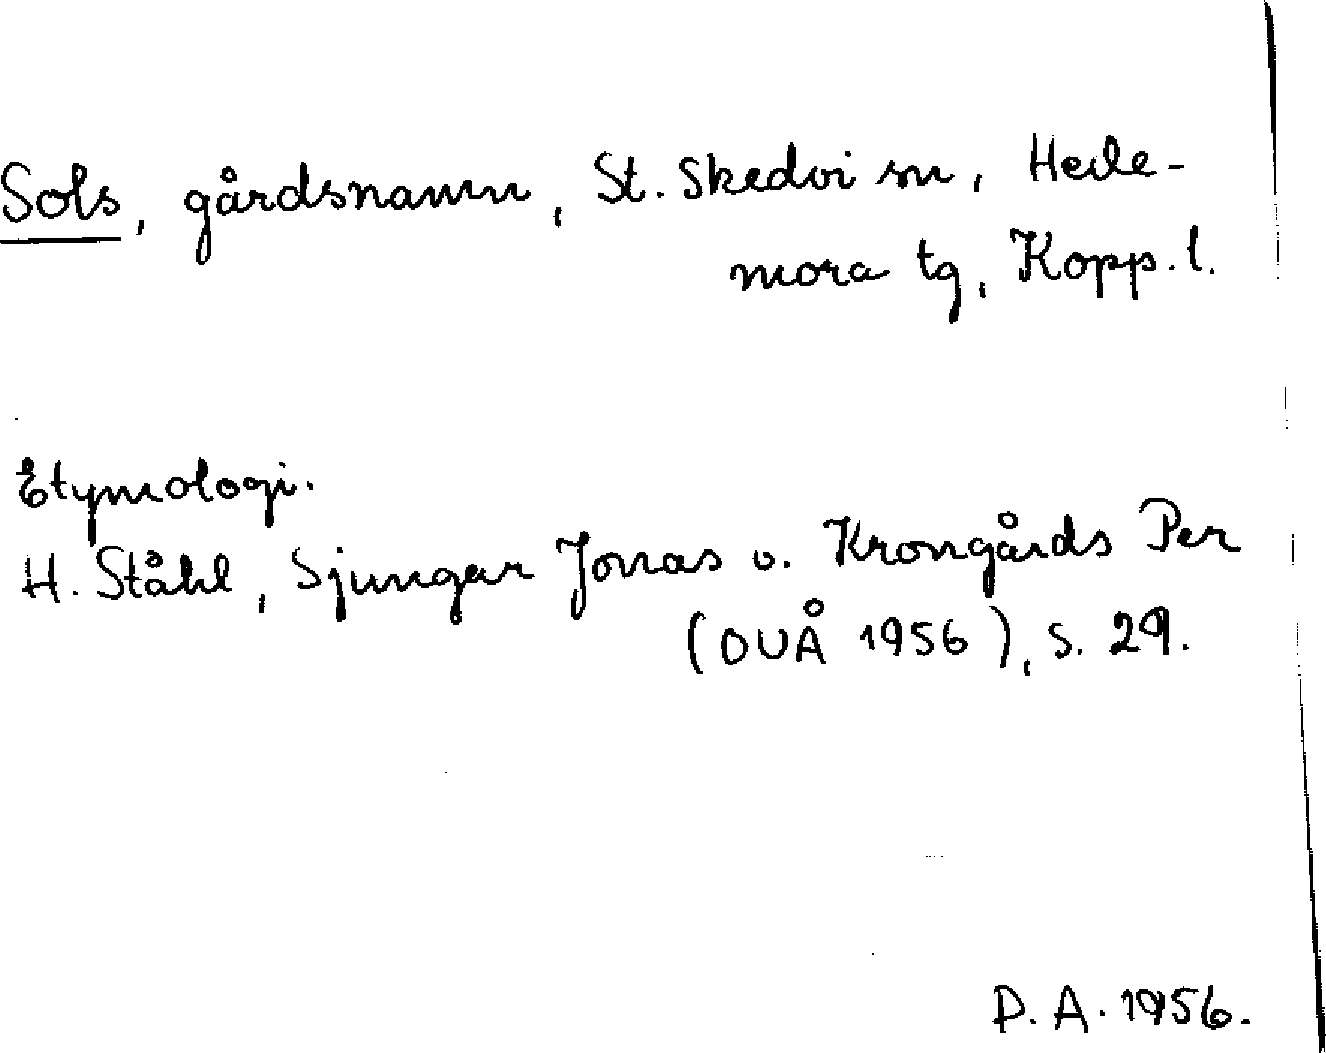 Sols, gårdsnamn, St. Skedvi sn, Hede-
mora tg, Kopp. l.
Etymologi.
H. Ståhl, Sjungar Jonas o. Krongårds Per
(DUÅ 1956), s. 29.
D. A. 1956.